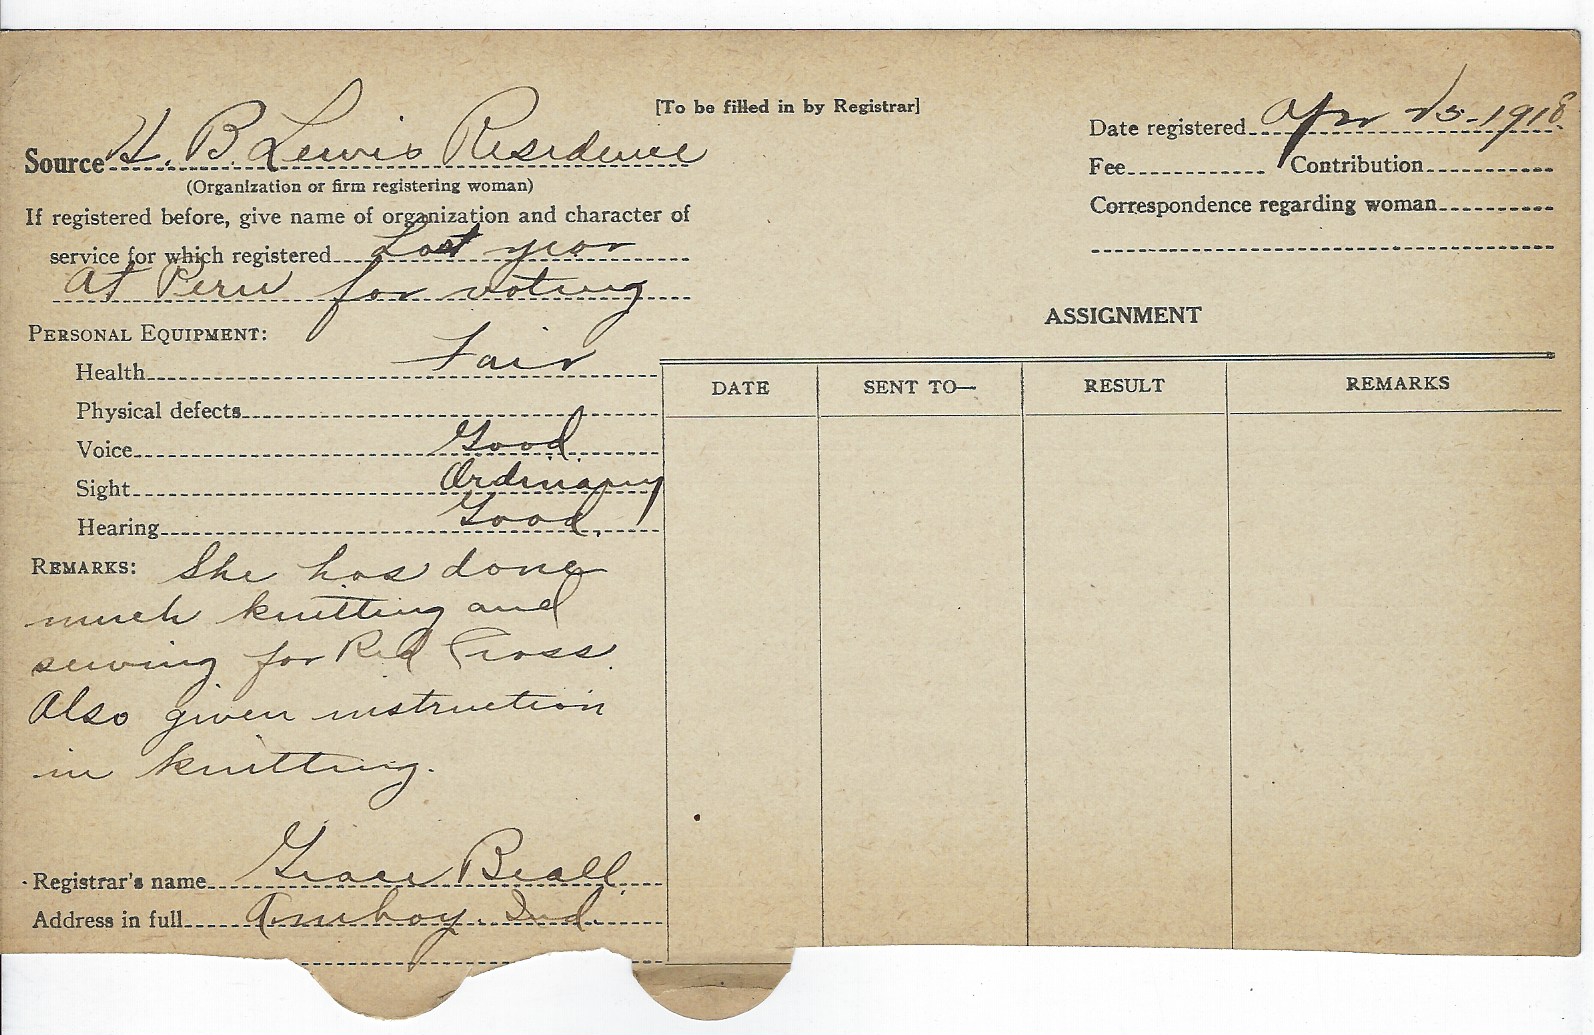 [To be filled in by Registrar]
Source H. B. Lewis Residence
(Organization or firm registering woman)
If registered before, give name of organization and character of
service for which registered Last year
at Peru for voting
PERSONAL EQUIPMENT:
Health Fair
Physical defects
Voice Good
Sight Ordinary
Hearing Good.
REMARKS: She has done
much knitting and
sewing for Red Cross.
Also given instruction
in knitting.
Registrar's name Grace Beall
Address in full Amboy. Ind.
Date registered Apr 25-1918
Fee Contribution
Correspondence regarding woman
ASSIGNMENT
DATE SENT TO— RESULT REMARKS